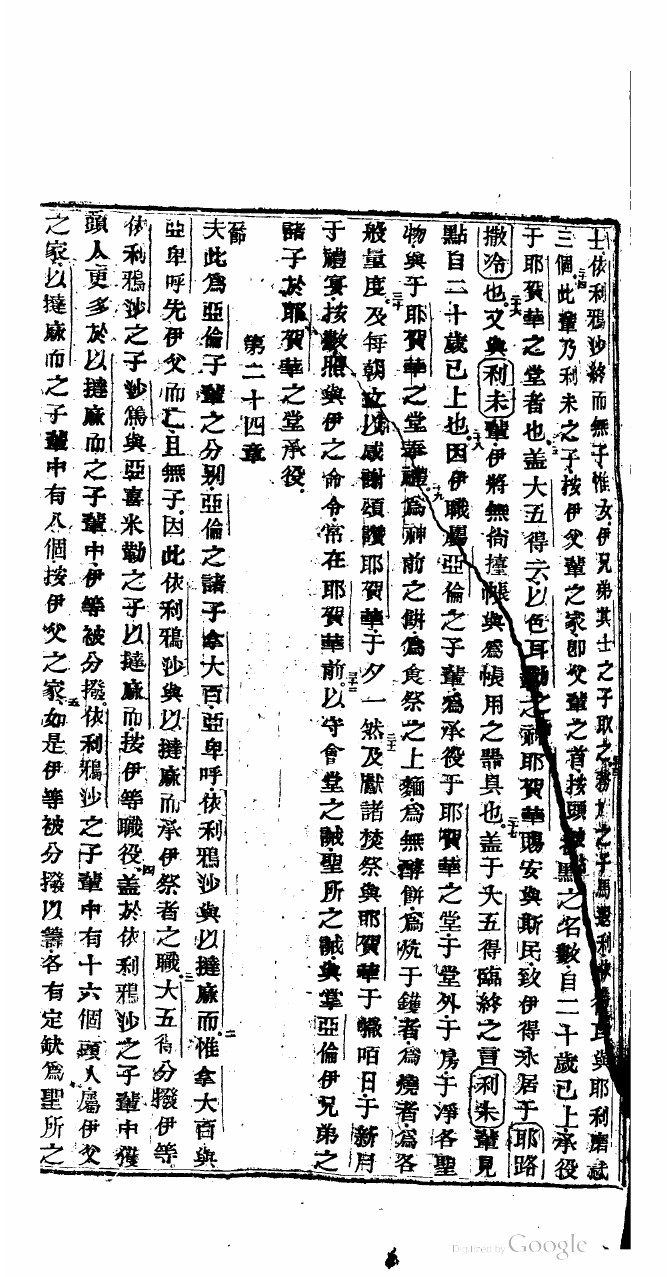 士依利鴉沙終而無子惟女伊兄弟其士之子取之務之子馬利與耶利磨忒
二四
三個此輩乃利未之子按伊父輩之家即父輩之首按頭點之名數自二十歲已上承役
于耶賀華之堂者也盖大五得云以色耳勒之神耶賀華賜安與斯民致伊得永居于耶路
二六
撒冷也又與利未輩伊將無尚撞帳與爲帳用之器具也盖于大五得臨終之言利未輩見
二七
點自二十歲已上也因伊職屬亞倫之子輩爲承役于耶賀華之堂于堂外于房于淨各聖
二八
物與于耶賀華之堂奉禮爲神前之餅爲食祭之上麵爲無酵餅爲炕于鑊者爲燒者爲各
二九
般量度及每朝立以感謝頌讚耶賀華于夕一然及獻諸焚祭與耶賀華于嘛咟日于新月
三十
于禮宴按數照與伊之命令常在耶賀華前以守會堂之誡聖所之誡與掌亞倫伊兄弟之
三二
諸子於耶賀華之堂承役
第二十四章
夫此爲亞倫子輩之分別亞倫之諸子拿大百亞卑呼依利鴉沙與以撻麻而惟拿大百與
二
亞卑呼先伊父而亡且無子因此依利鴉沙與以撻麻而承伊祭者之職大五得分撥伊等
三
依利鴉沙之子沙篤與亞喜米勒之子以撻麻而按伊等職役盖於依利鴉沙之子輩中獲
四
頭人更多於以撻麻而之子輩中伊等被分撥依利鴉沙之子輩中有十六個頭人屬伊父
之家以撻麻而之子輩中有八個按伊父之家如是伊等被分撥以籌各有定缺爲聖所之
五
Digitized by Google